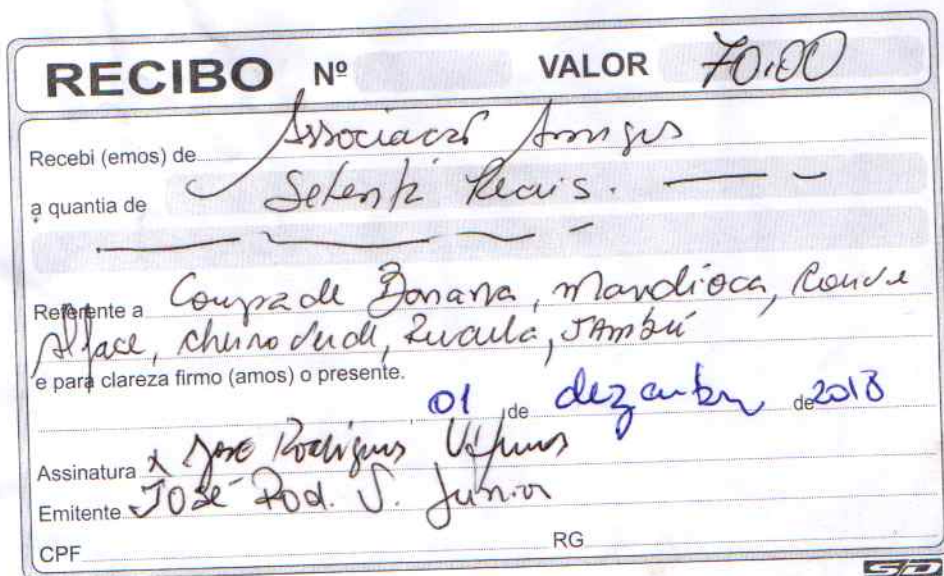 RECIBO Nº VALOR 70,00
Recebi (emos) de Associação Amigos
a quantia de Setenta Reais.
Referente a Compra de Banana, mandioca, Couve
Alface, cheiro verde, Rucula, JAmbú
e para clareza firmo (amos) o presente.
, 01 de dezembro de 2018
Assinatura x José Rodrigues
Emitente José Rod. V. Junior
CPF RG
SD